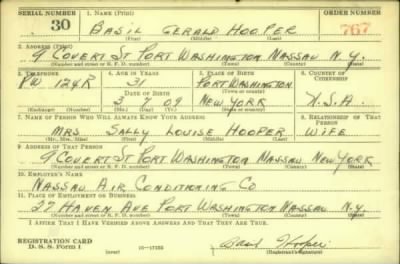 SERIAL NUMBER 1. NAME (Print) ORDER NUMBER
30 BASIL GERALD HOOPER 767
(First) (Middle) (Last)
2. ADDRESS (Print)
9 COVERT ST PORT WASHINGTON NASSAU N.Y.
(Number and street or R. F. D. number) (Town) (County) (State)
3. TELEPHONE 4. AGE IN YEARS 5. PLACE OF BIRTH 6. COUNTRY OF CITIZENSHIP
PW 124R 31 PORT WASHINGTON
(Town or county)
DATE OF BIRTH
3 7 09 NEW YORK U.S.A.
(Exchange) (Number) (Mo.) (Day) (Yr.) (State or country)
7. NAME OF PERSON WHO WILL ALWAYS KNOW YOUR ADDRESS 8. RELATIONSHIP OF THAT PERSON
MRS SALLY LOUISE HOOPER WIFE
(Mr., Mrs., Miss) (First) (Middle) (Last)
9. ADDRESS OF THAT PERSON
9 COVERT ST PORT WASHINGTON NASSAU NEW YORK
(Number and street or R. F. D. number) (Town) (County) (State)
10. EMPLOYER'S NAME
NASSAU AIR CONDITIONING CO
11. PLACE OF EMPLOYMENT OR BUSINESS
27 HAVEN AVE PORT WASHINGTON NASSAU N.Y.
(Number and street or R. F. D. number) (Town) (County) (State)
I AFFIRM THAT I HAVE VERIFIED ABOVE ANSWERS AND THAT THEY ARE TRUE.
REGISTRATION CARD
D. S. S. Form 1 (over) 16-17105 Basil Hooper
(Registrant's signature)